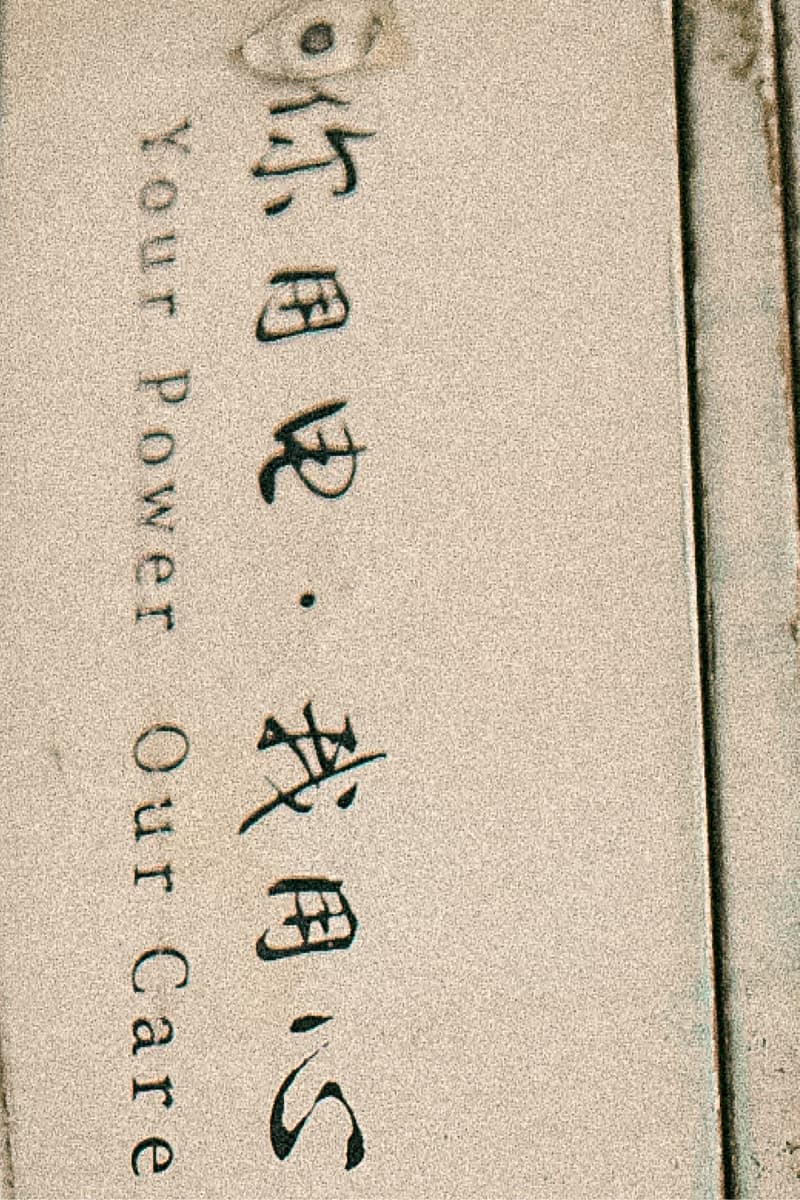 你用电·我用心
Your Power Our Care